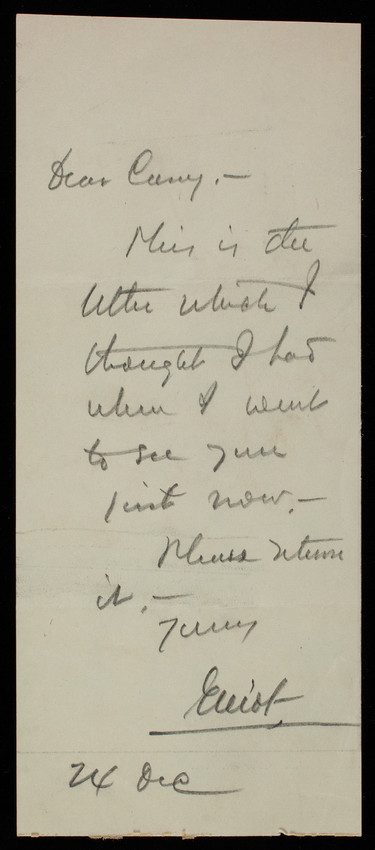 Dear Casey,—
This is the
letter which I
thought I had
when I went
to see you
just now.—
Please return
it.—
Yours
Eliot
24 Dec